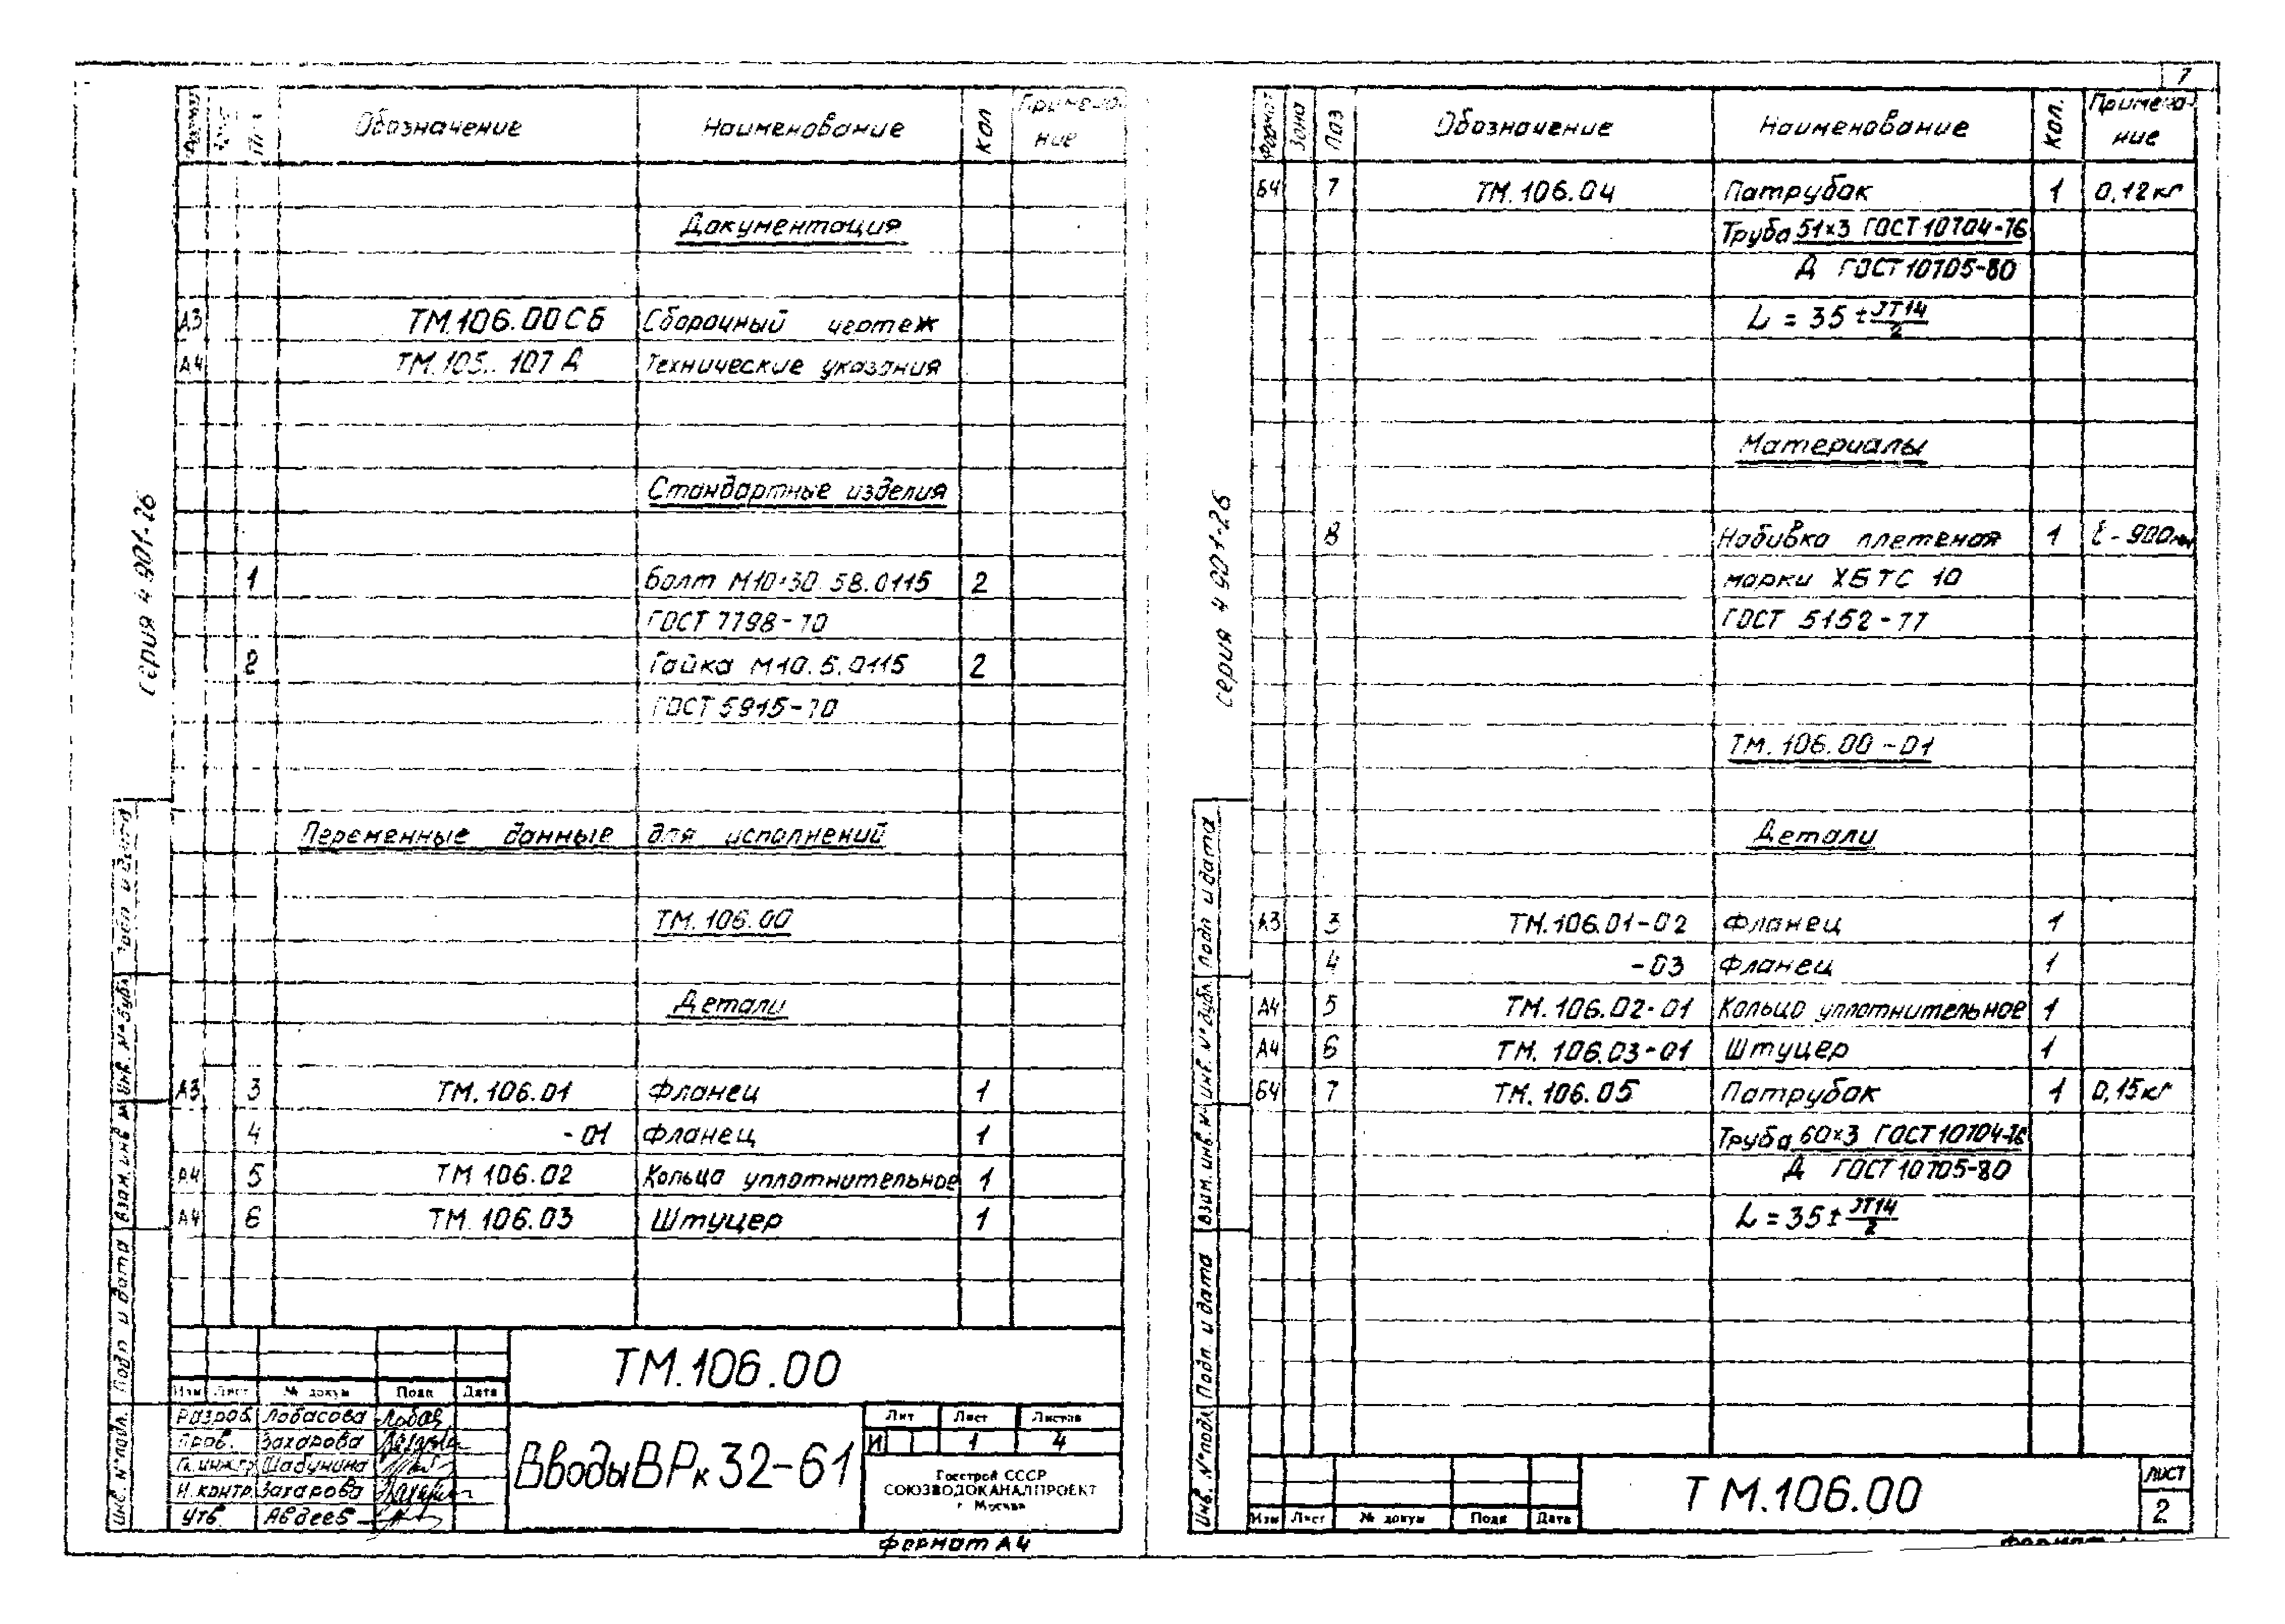 7
Обозначение Наименование Кол Примеча-
ние
Документация
А3 ТМ.106.00СБ Сборочный чертеж
А4 ТМ.105..107 Д Технические указания
Стандартные изделия
1 Болт М10×30.58.0115 2
ГОСТ 7798-70
2 Гайка М10.5.0115 2
ГОСТ 5915-70
Переменные данные для исполнений
ТМ.106.00
Детали
А3 3 ТМ.106.01 Фланец 1
4 -01 Фланец 1
А4 5 ТМ 106.02 Кольцо уплотнительное 1
А4 6 ТМ.106.03 Штуцер 1
серия 4 901-26
Подп и дата
Инв. № дубл
Взам. инв №
Подп и дата
Инв. № подл.
ТМ.106.00
Изм Лист № докум Подп Дата
Разроб. Лобасова
Пров. Захарова
Гл. инж.пр Шабунина
Н. контр. Захарова
Утв. Авдеев
Вводы ВРк 32-61
Лит Лист Листов
И 1 4
Госстрой СССР
СОЮЗВОДОКАНАЛПРОЕКТ
г Москва
Формат А4
Формат Зона Поз Обозначение Наименование Кол. Примеча-
ние
БЧ 7 ТМ.106.04 Патрубок 1 0,12кг
Труба 51×3 ГОСТ 10704-76
Д ГОСТ 10705-80
L = 35 ± JT14
2
Материалы
8 Набивка плетеная 1 ℓ-900мм
марки ХБТС 10
ГОСТ 5152-77
ТМ.106.00-01
Детали
А3 3 ТМ.106.01-02 Фланец 1
4 -03 Фланец 1
А4 5 ТМ.106.02-01 Кольцо уплотнительное 1
А4 6 ТМ. 106.03-01 Штуцер 1
БЧ 7 ТМ. 106.05 Патрубок 1 0,15кг
Труба 60×3 ГОСТ 10704-76
Д ГОСТ 10705-80
L = 35 ± JT14
2
серия 4 901-26
Подп и дата
Инв. № дубл.
Взам. инв. №
Подп. и дата
Инв. № подл
Изм Лист № докум Подп Дата
ТМ.106.00
Лист
2